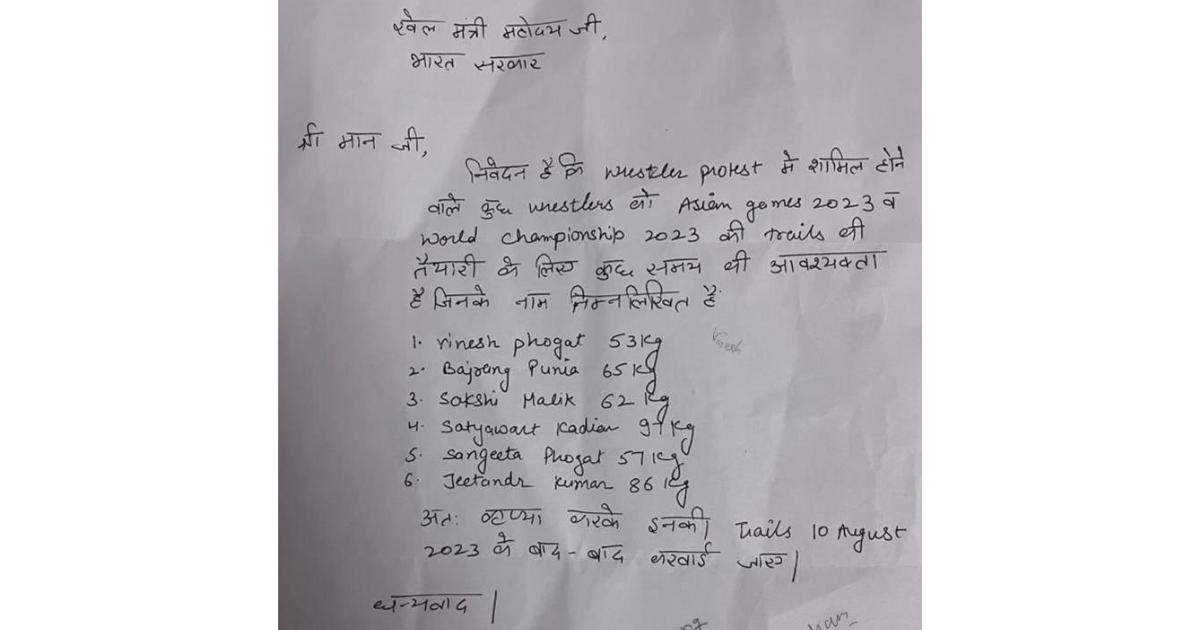 खेल मंत्री महोदय जी,
भारत सरकार
श्री मान जी,
निवेदन है कि wrestler protest मे शामिल होने
वाले कुछ wrestlers को Asian games 2023 व
World Championship 2023 की trails की
तैयारी के लिए कुछ समय की आवश्यकता
है जिनके नाम निम्नलिखित है
1. vinesh phogat 53kg
2. Bajrang Punia 65kg
3. Sakshi Malik 62 kg
4. Satyawart Kadian 97kg
5. Sangeeta Phogat 57kg
6. Jeetandr Kumar 86kg
अत: कृप्या करके इनकी Trails 10 August
2023 के बाद-बाद करवाई जाए।
धन्यवाद।